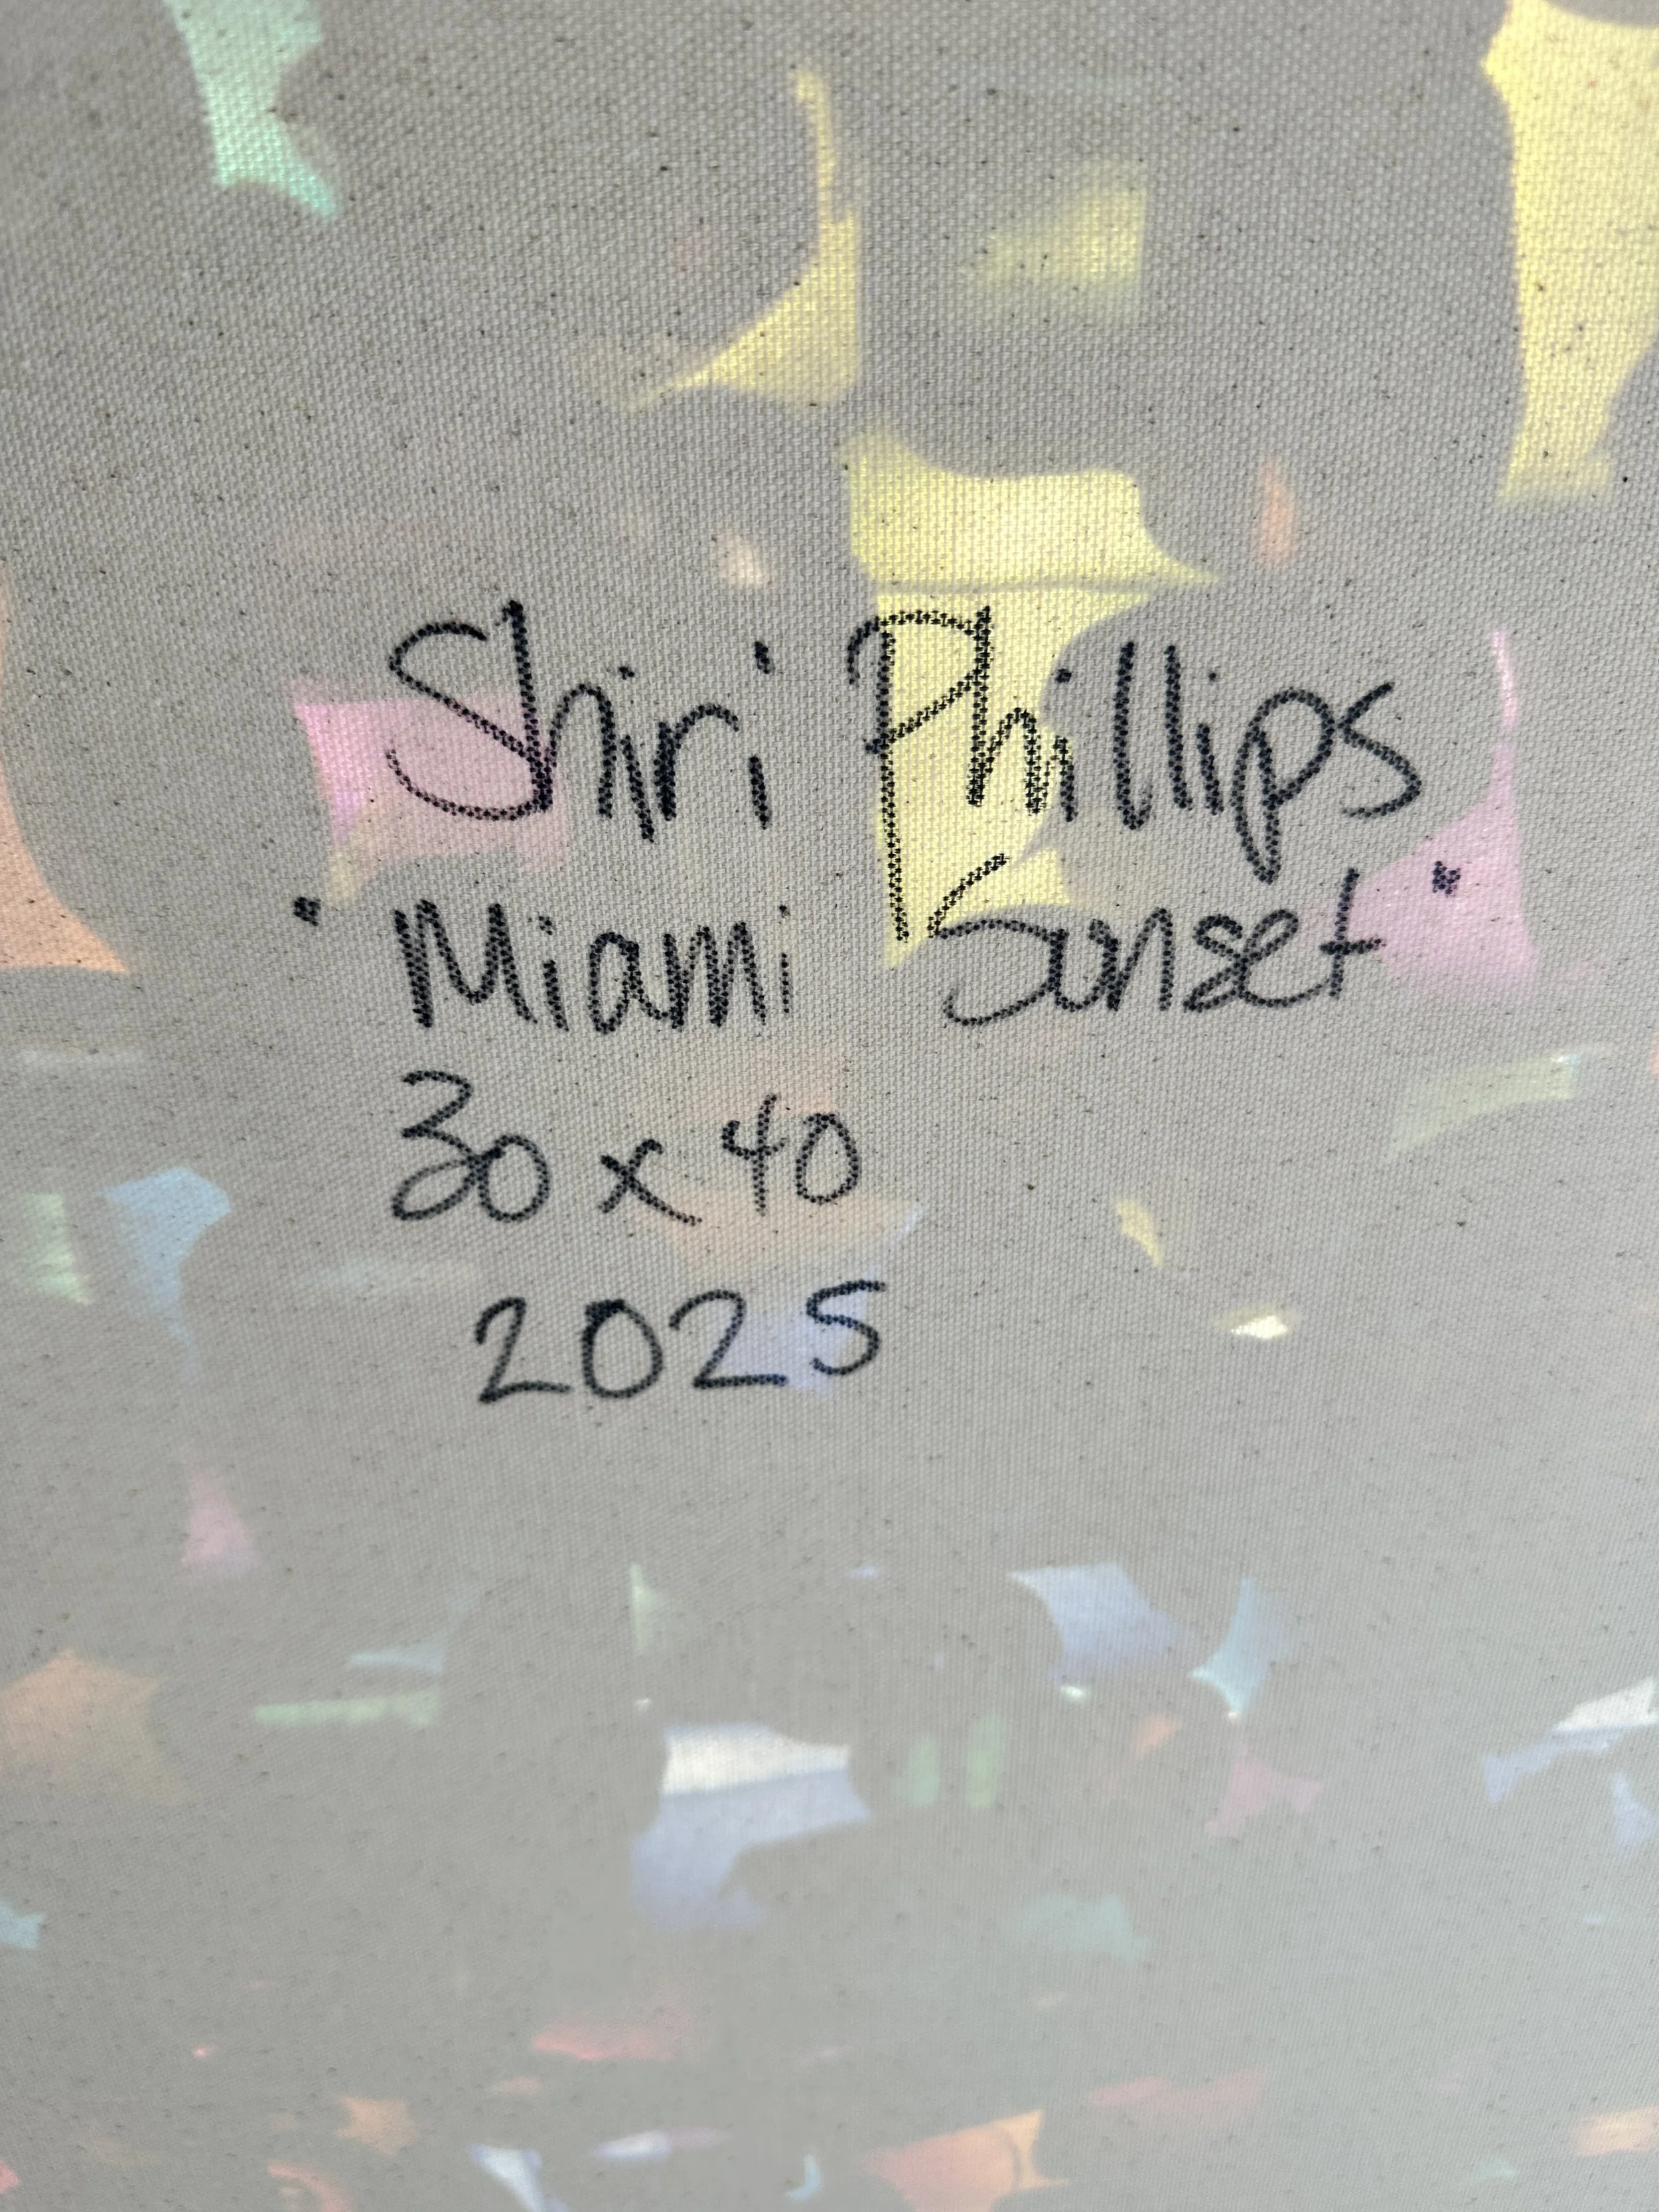 Shiri Phillips
"Miami Sunset"
30 x 40
2025